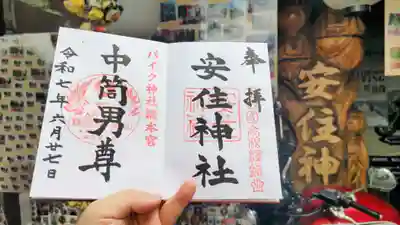 奉拝
安住神社
バイク神社總本宮
中筒男尊
令和七年六月廿七日
安住神